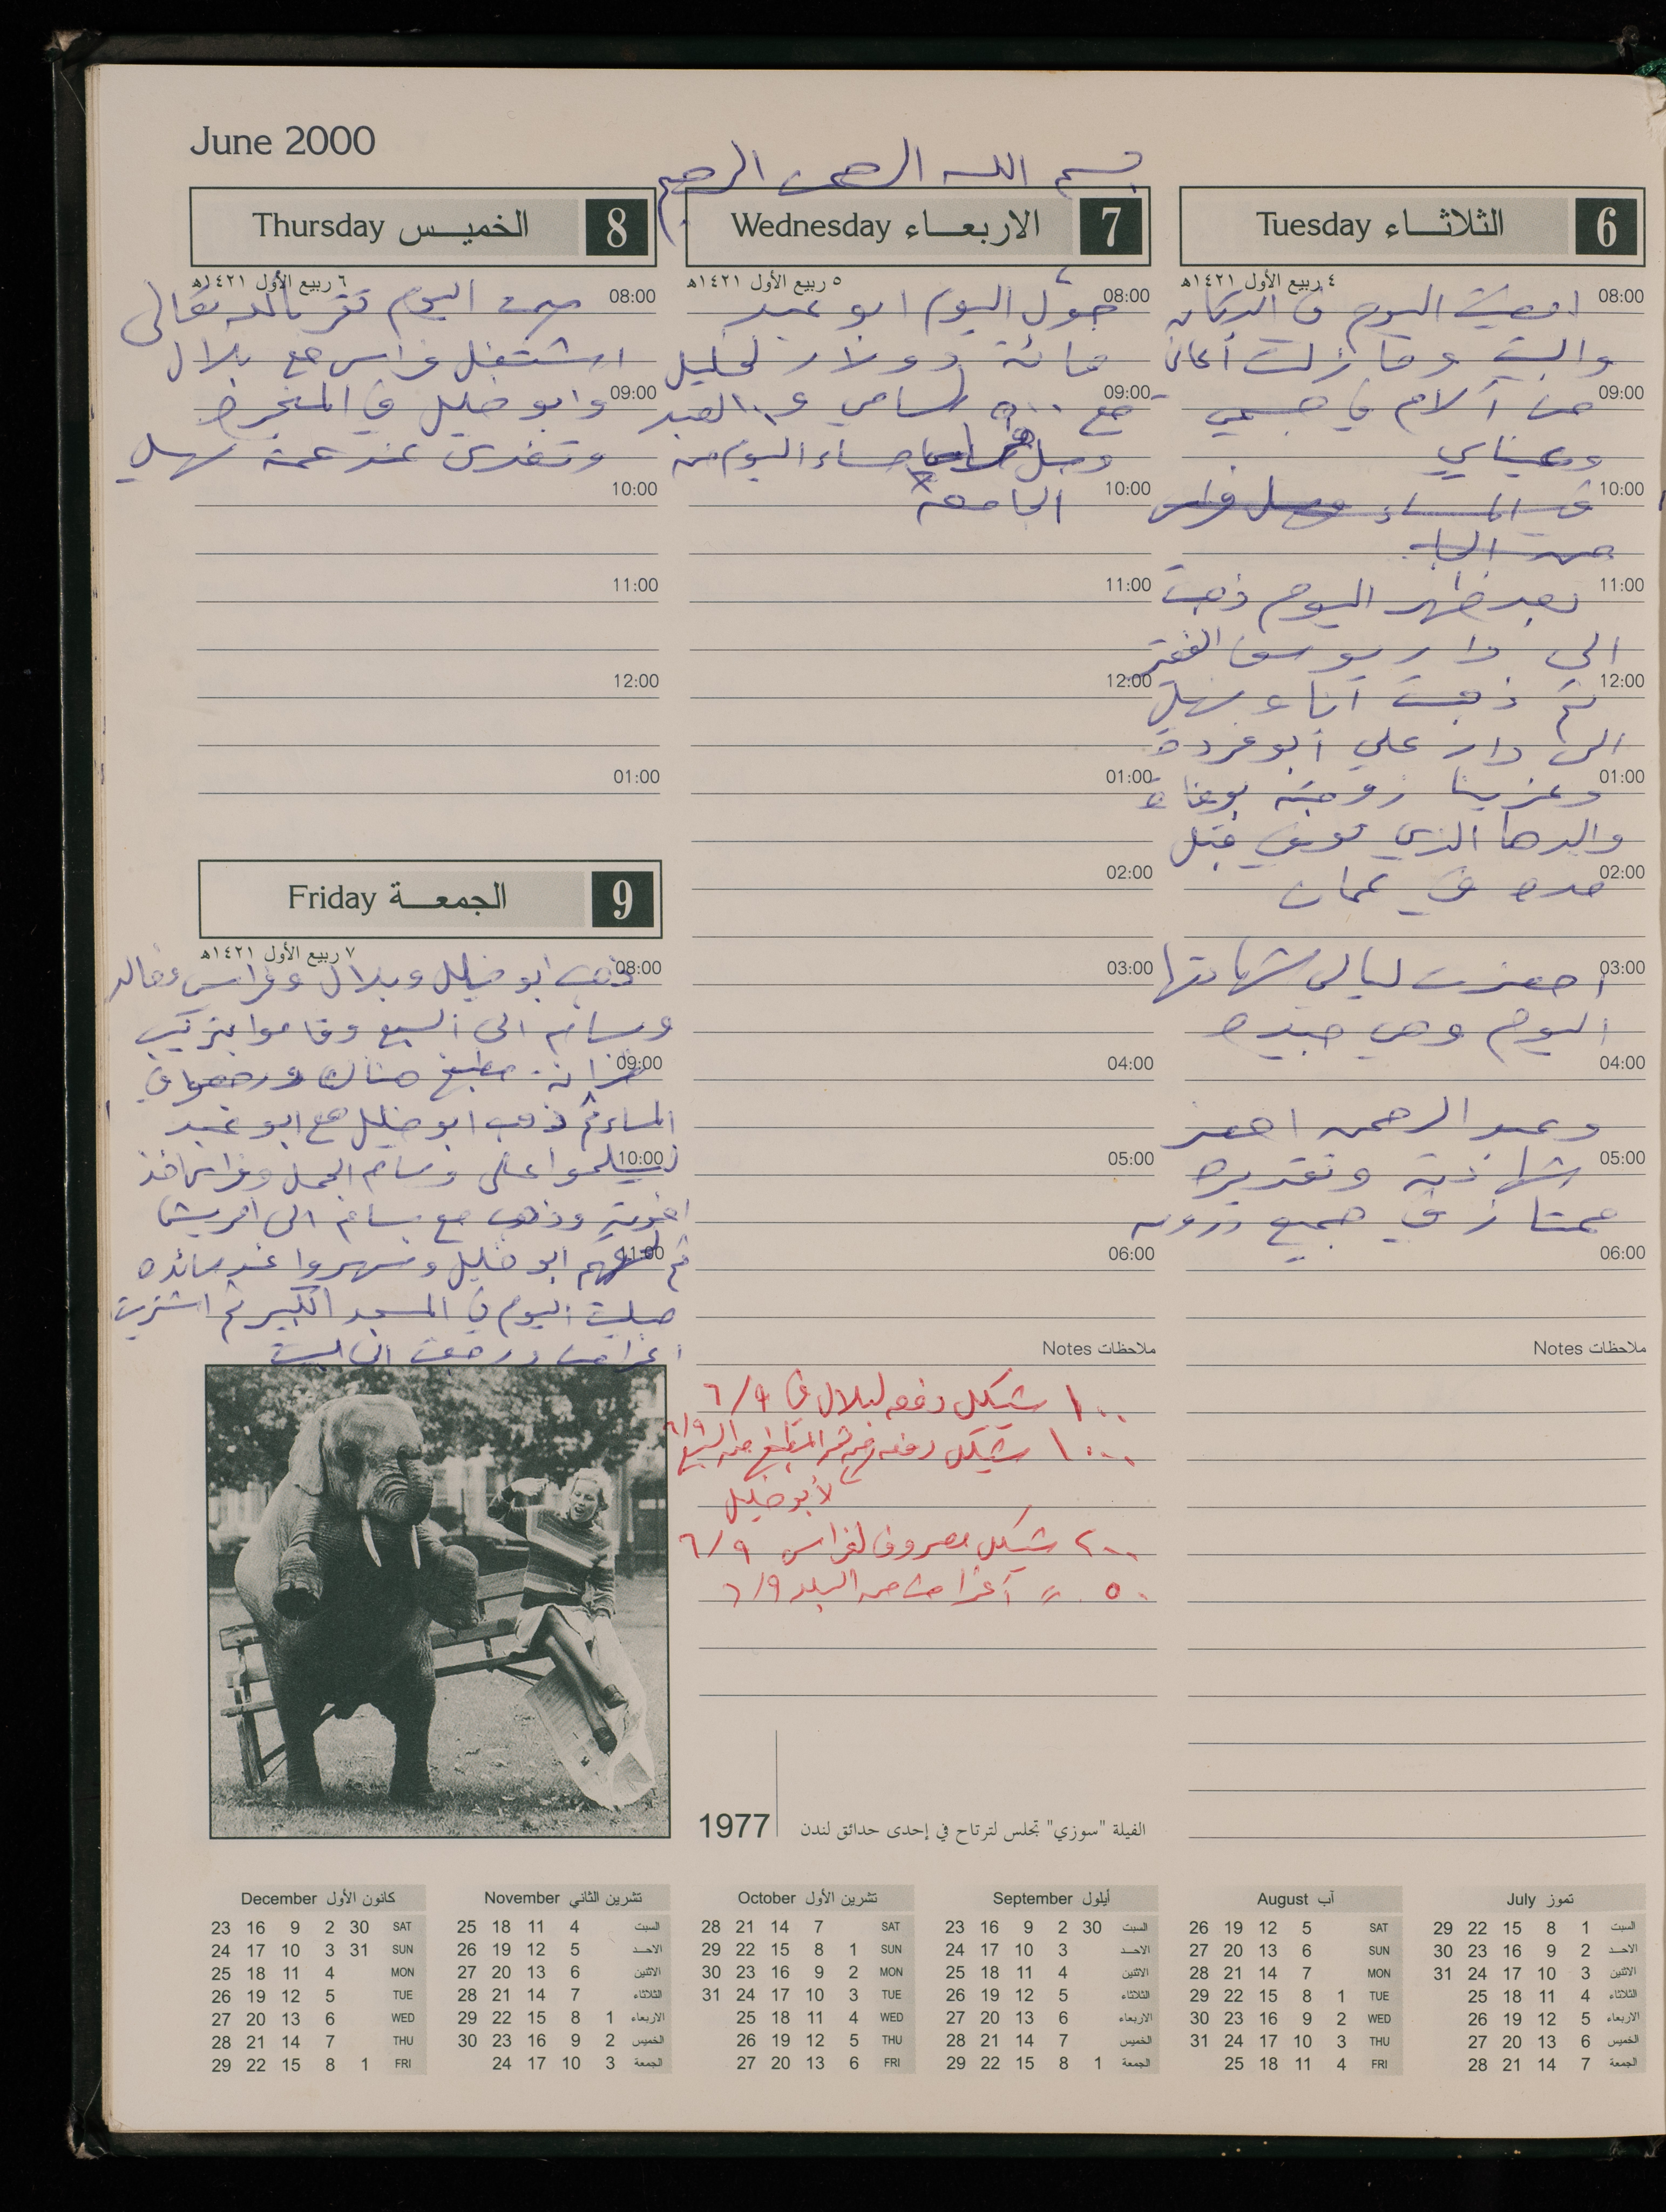 June 2000
بسم الله الرحمن الرحيم
6 الثلاثاء Tuesday
٤ ربيع الأول ١٤٢١هـ
08:00
امضيت اليوم في الدكان
والبيت وما زلت أعاني
09:00
من آلام في جسمي
وعيناي
10:00
في المساء وصل فراس
من الجا
11:00
بعد ظهر اليوم ذهبت
الى دار يوسف الفقير
12:00
ثم ذهبت انا و سهيل
الى دار علي أبو عردة
01:00
وعزينا زوجته بوفاة
والدها الذي توفي قبل
02:00
مده في عمان
03:00
احضرت ليالي شهادتها
اليوم وهي جيده
04:00
وعبد الرحمن احضر
05:00
شهادته وتقديره
ممتاز في جميع دروسه
06:00
ملاحظات Notes
7 الاربعاء Wednesday
٥ ربيع الأول ١٤٢١هـ
08:00
حوّل اليوم ابو عبد
مائة دولار لخليل
09:00
مع ٥٠٠ لسامي و ١٠٠ العبد
وصل فراس مساء اليوم من
10:00
الجامعة
11:00
12:00
01:00
02:00
03:00
04:00
05:00
06:00
ملاحظات Notes
١٠٠ شيكل دفعه لبلال في ٦/٩
١٠٠٠ شيكل دفعه من المطبخ من السبع ٦/٩
لأبو خليل
٢٠٠ شيكل مصروف لفراس ٦/٩
٥٠ // أغراض من البلد ٦/٩
8 الخميس Thursday
٦ ربيع الأول ١٤٢١هـ
08:00
صمت اليوم تقربا لله تعالى
اشتغل فراس مع بلال
09:00
وابو خليل في المنجره
وتغدى عند عمته سهيل
10:00
11:00
12:00
01:00
9 الجمعة Friday
٧ ربيع الأول ١٤٢١هـ
08:00
ذهب ابو خليل وبلال وفراس وخالد
وسام الى السبع وقاموا بتركيب
09:00
خزانة مطبخ هناك ورجعوا في
المساء ثم ذهب ابو خليل مع ابو عبد
10:00
ليسلموا على وسام الجمل وفراس اخذ
اخوته وذهب مع بسام الى
11:00
ثم لحقهم ابو خليل وسهروا عند مائده
صليت اليوم في المسجد الكبير ثم اشتريت
اغراض ورجعت الى البيت
1977
الفيلة "سوزي" تجلس لترتاح في إحدى حدائق لندن
تموز July
السبت 1 8 15 22 29
الاحد 2 9 16 23 30
الاثنين 3 10 17 24 31
الثلاثاء 4 11 18 25
الاربعاء 5 12 19 26
الخميس 6 13 20 27
الجمعة 7 14 21 28
آب August
SAT 5 12 19 26
SUN 6 13 20 27
MON 7 14 21 28
TUE 1 8 15 22 29
WED 2 9 16 23 30
THU 3 10 17 24 31
FRI 4 11 18 25
أيلول September
السبت 30 2 9 16 23
الاحد 3 10 17 24
الاثنين 4 11 18 25
الثلاثاء 5 12 19 26
الاربعاء 6 13 20 27
الخميس 7 14 21 28
الجمعة 1 8 15 22 29
تشرين الأول October
SAT 7 14 21 28
SUN 1 8 15 22 29
MON 2 9 16 23 30
TUE 3 10 17 24 31
WED 4 11 18 25
THU 5 12 19 26
FRI 6 13 20 27
تشرين الثاني November
السبت 4 11 18 25
الاحد 5 12 19 26
الاثنين 6 13 20 27
الثلاثاء 7 14 21 28
الاربعاء 1 8 15 22 29
الخميس 2 9 16 23 30
الجمعة 3 10 17 24
كانون الأول December
SAT 30 2 9 16 23
SUN 31 3 10 17 24
MON 4 11 18 25
TUE 5 12 19 26
WED 6 13 20 27
THU 7 14 21 28
FRI 1 8 15 22 29